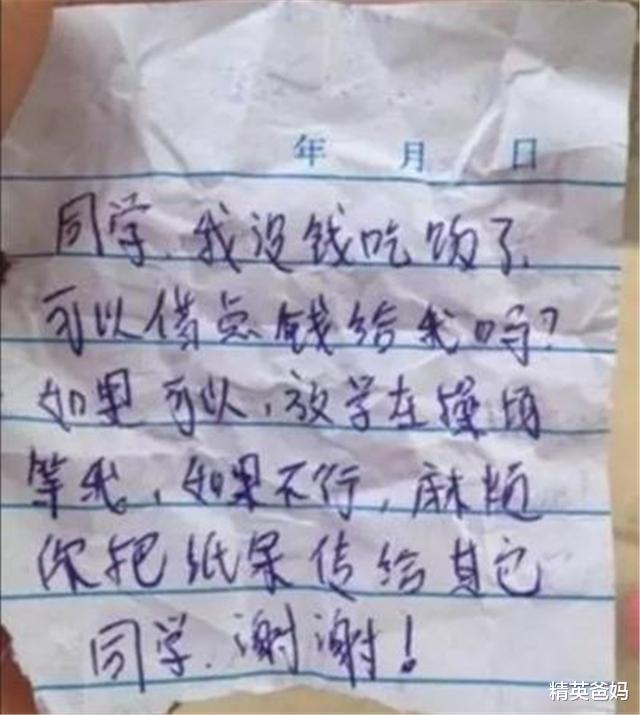 年 月 日
同学、我没钱吃饭了、
可以借点钱给我吗?
如果可以,放学在操场
等我,如果不行,麻烦
你把纸条传给其它
同学、谢谢!
精英爸妈